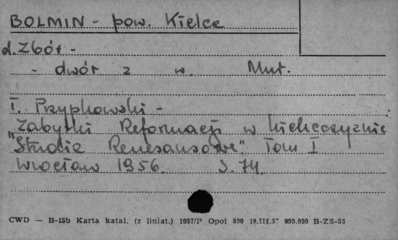 BOLMIN - pow. Kielce
d. Zbór -
- dwór z w. Mur.
T. Przypkowski -
Zabytki Reformacji w Kielecczyźnie
"Studia Renesansowe" Tom I
Wrocław 1956. S. 74
CWD — B-15b Karta katal. (z liniat.) 1057/P Opol 800 19.III.57 950.000 B-ZS-55